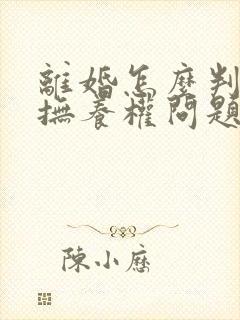 離婚怎麼判
撫養權問題
陳小歷